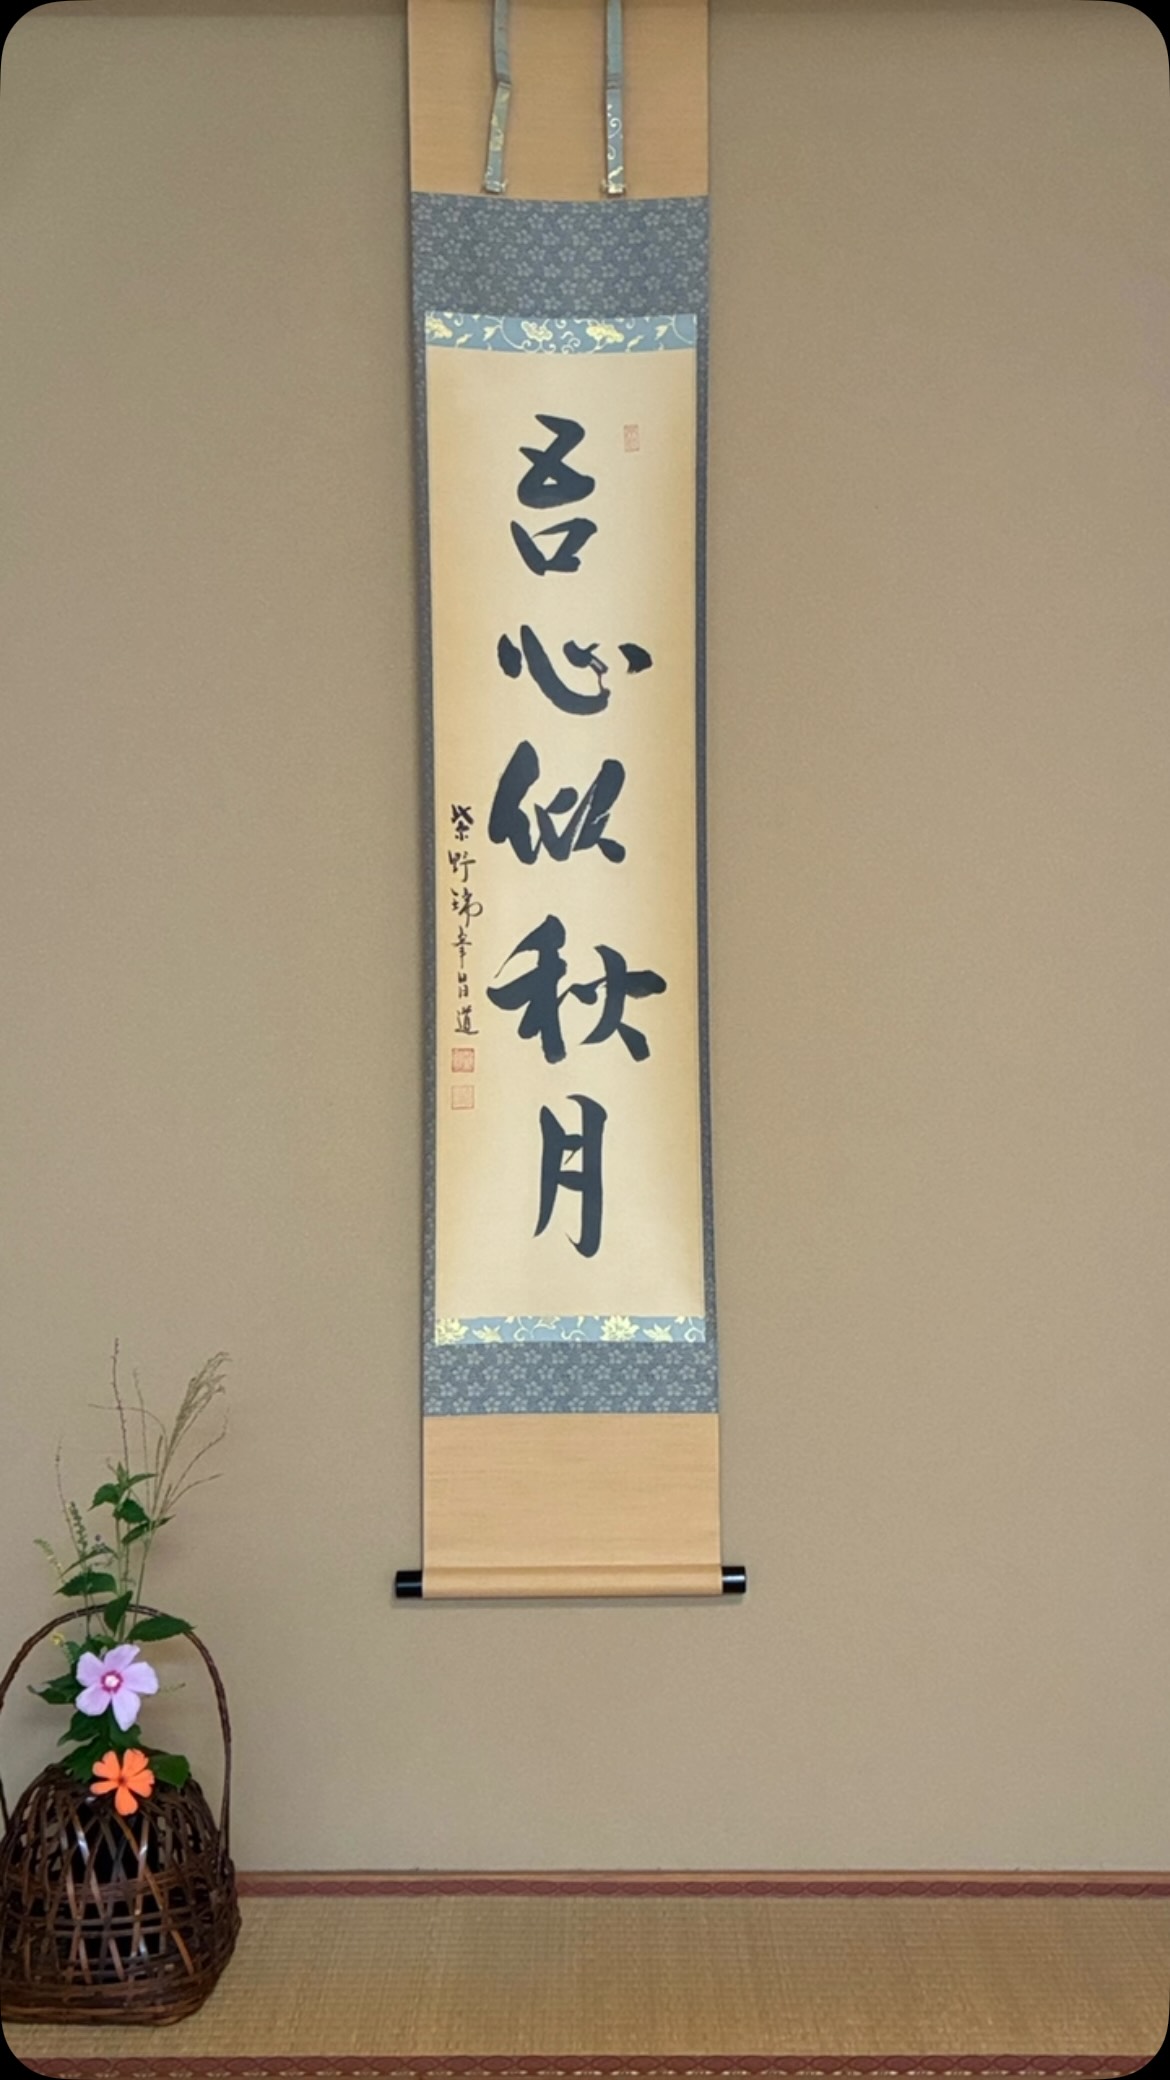 吾心似秋月
紫野瑞峯昔道